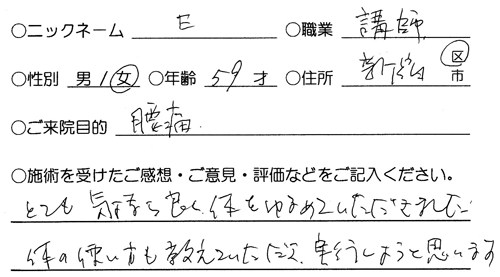 ○ニックネーム E ○職業 講師
○性別 男 / 女 ○年齢 59 才 ○住所 新宿 区 市
○ご来院目的 腰痛.
○施術を受けたご感想・ご意見・評価などをご記入ください。
とても 気持ち良く、体をゆるめていただきました
体の使い方も教えていただき、実行しようと思います